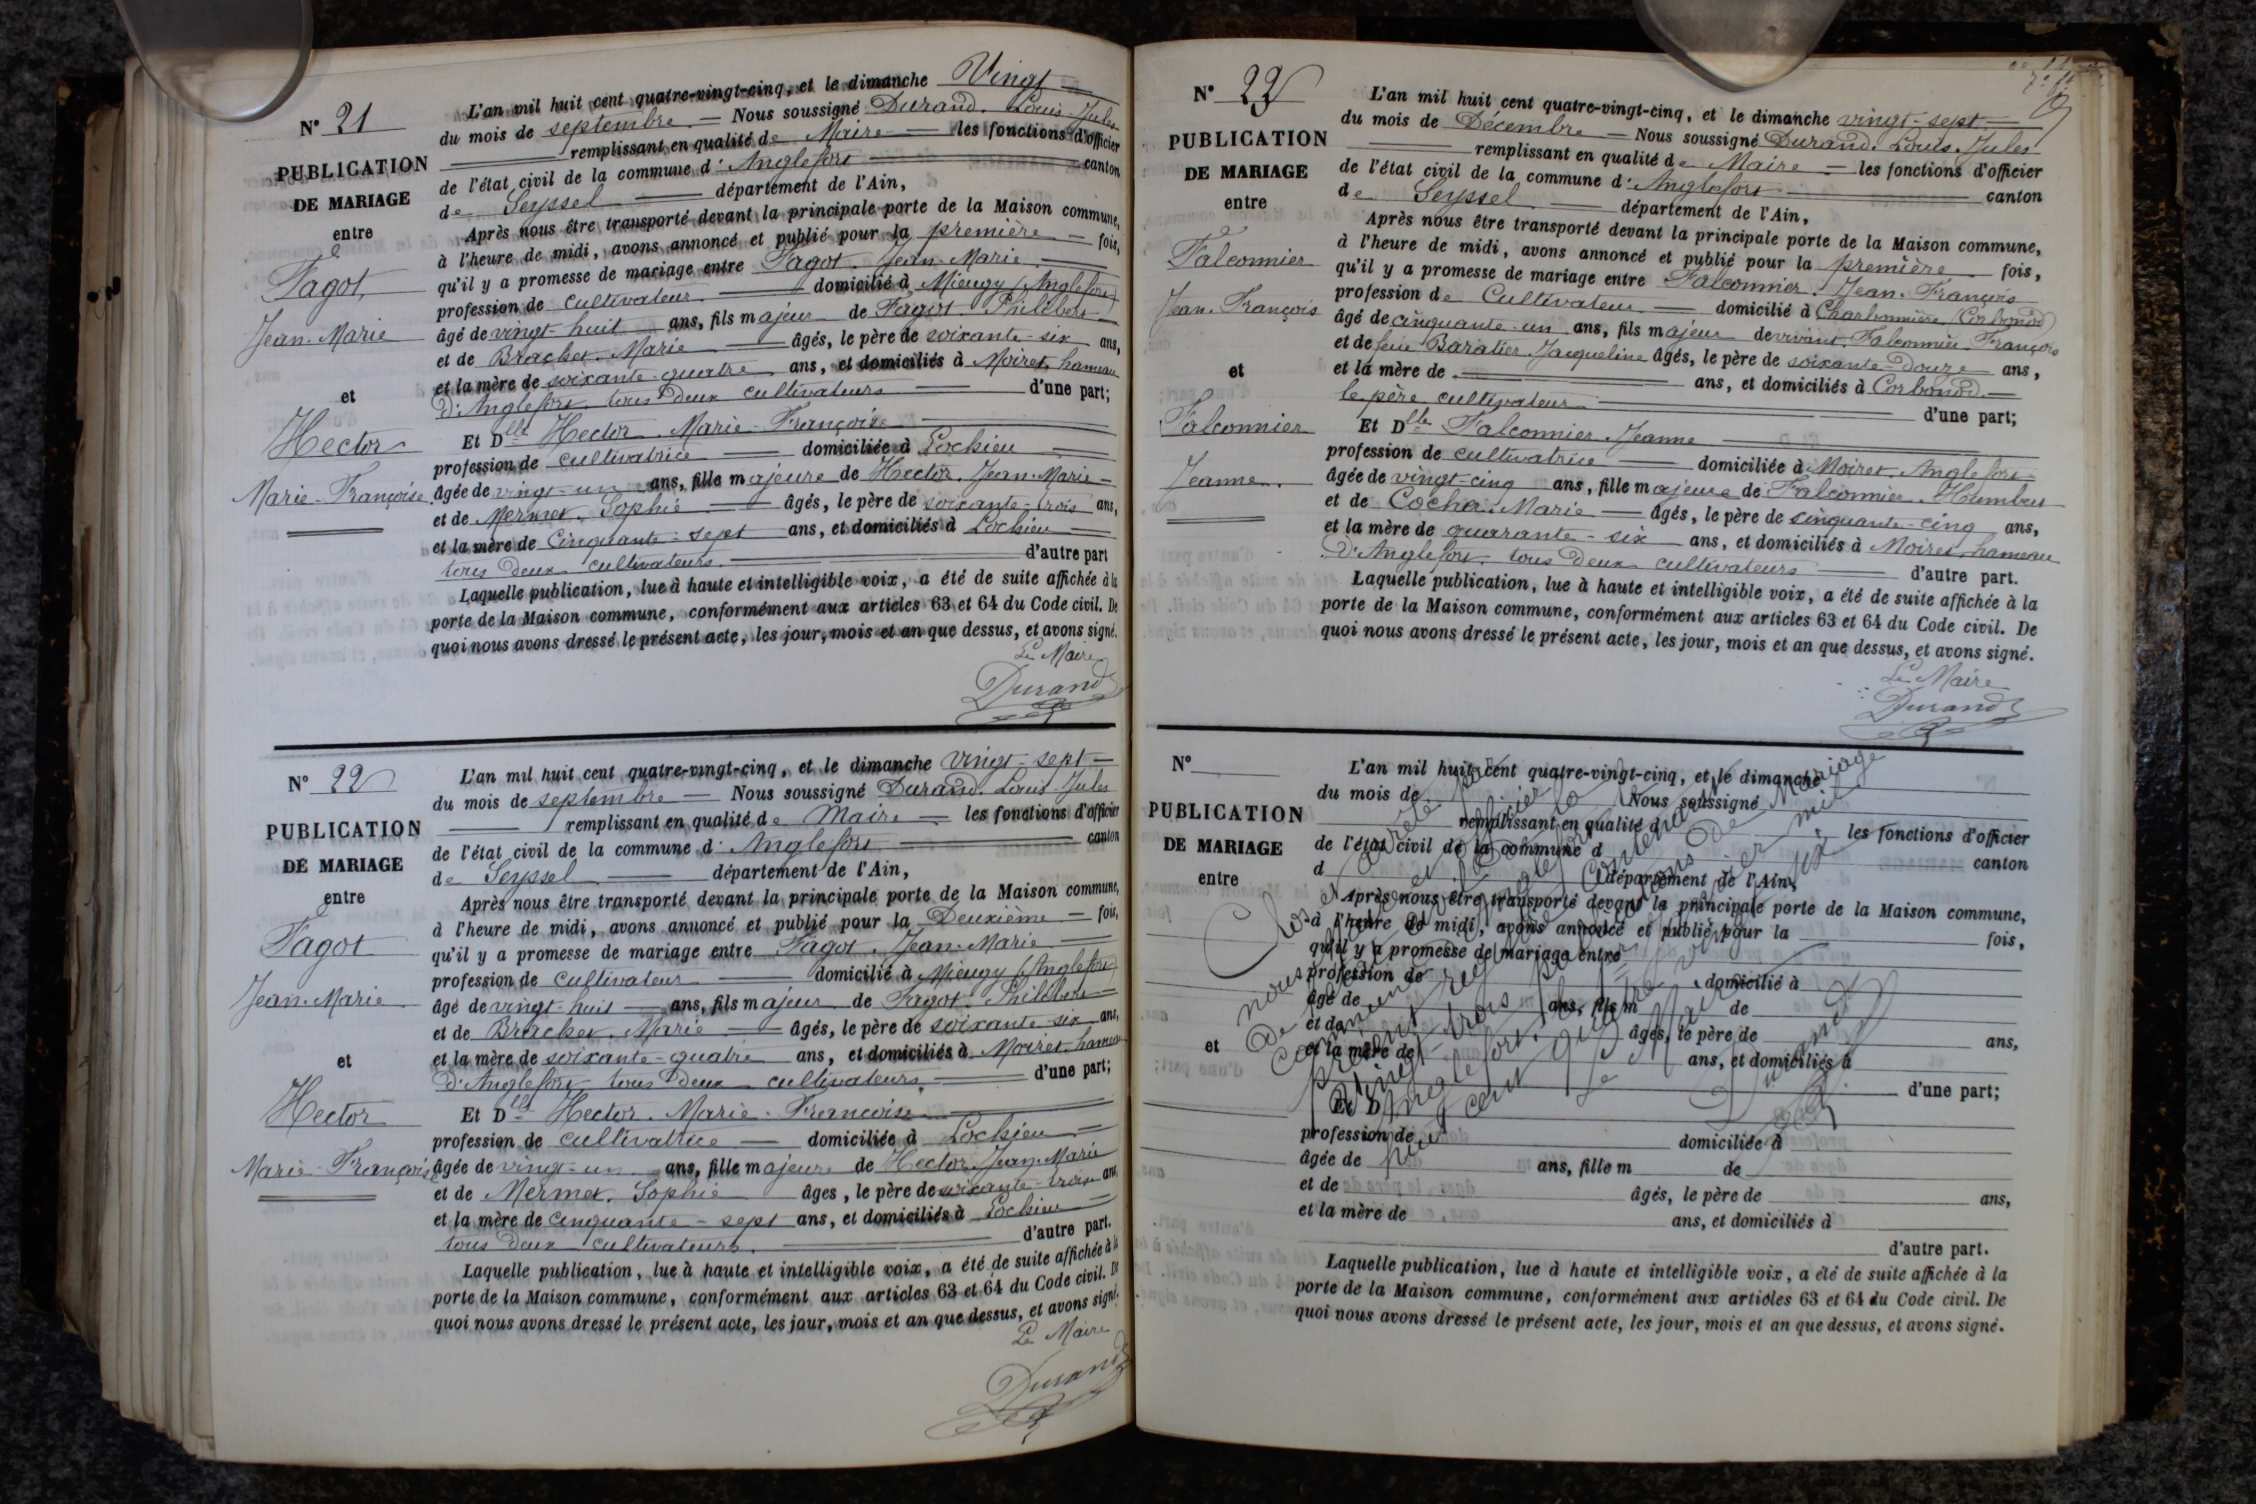 N° 21
PUBLICATION
DE MARIAGE
entre
Fagot
Jean-Marie
et
Hector
Marie-Françoise
L'an mil huit cent quatre-vingt-cinq, et le dimanche Vingt
du mois de septembre — Nous soussigné Durand Louis Jules
remplissant en qualité de Maire — les fonctions d'officier
de l'état civil de la commune d'Anglefort canton
de Seyssel — département de l'Ain,
Après nous être transporté devant la principale porte de la Maison commune,
à l'heure de midi, avons annoncé et publié pour la première — fois,
qu'il y a promesse de mariage entre Fagot Jean-Marie
profession de cultivateur — domicilié à Mieugy (Anglefort)
âgé de vingt-huit ans, fils majeur de Fagot Philibert
et de Brachet Marie — âgés, le père de soixante-six ans,
et la mère de soixante-quatre ans, et domiciliés à Moiret hameau
d'Anglefort tous deux cultivateurs — d'une part;
Et Dlle Hector Marie-Françoise
profession de cultivatrice — domiciliée à Lochieu
âgée de vingt-un ans, fille majeure de Hector Jean-Marie
et de Mermet Sophie — âgés, le père de soixante-trois ans,
et la mère de cinquante-sept ans, et domiciliés à Lochieu
tous deux cultivateurs. — d'autre part
Laquelle publication, lue à haute et intelligible voix, a été de suite affichée à la
porte de la Maison commune, conformément aux articles 63 et 64 du Code civil. De
quoi nous avons dressé le présent acte, les jour, mois et an que dessus, et avons signé.
Le Maire
Durand
N° 22
PUBLICATION
DE MARIAGE
entre
Fagot
Jean-Marie
et
Hector
Marie-Françoise
L'an mil huit cent quatre-vingt-cinq, et le dimanche vingt-sept
du mois de septembre — Nous soussigné Durand Louis Jules
remplissant en qualité de Maire — les fonctions d'officier
de l'état civil de la commune d'Anglefort canton
de Seyssel — département de l'Ain,
Après nous être transporté devant la principale porte de la Maison commune,
à l'heure de midi, avons annoncé et publié pour la Deuxième — fois,
qu'il y a promesse de mariage entre Fagot Jean-Marie
profession de cultivateur — domicilié à Mieugy (Anglefort)
âgé de vingt-huit — ans, fils majeur de Fagot Philibert
et de Brachet Marie — âgés, le père de soixante-six ans,
et la mère de soixante-quatre ans, et domiciliés à Moiret hameau
d'Anglefort tous deux cultivateurs. — d'une part;
Et Dlle Hector Marie-Françoise
profession de cultivatrice — domiciliée à Lochieu
âgée de vingt-un ans, fille majeure de Hector Jean-Marie
et de Mermet Sophie âgés, le père de soixante-trois ans
et la mère de cinquante-sept ans, et domiciliés à Lochieu
tous deux cultivateurs. — d'autre part.
Laquelle publication, lue à haute et intelligible voix, a été de suite affichée à la
porte de la Maison commune, conformément aux articles 63 et 64 du Code civil. De
quoi nous avons dressé le présent acte, les jour, mois et an que dessus, et avons signé.
Le Maire
Durand
N° 23
PUBLICATION
DE MARIAGE
entre
Falconnier
Jean-François
et
Falconnier
Jeanne.
L'an mil huit cent quatre-vingt-cinq, et le dimanche vingt-sept
du mois de Décembre — Nous soussigné Durand Louis Jules
remplissant en qualité de Maire — les fonctions d'officier
de l'état civil de la commune d'Anglefort canton
de Seyssel — département de l'Ain,
Après nous être transporté devant la principale porte de la Maison commune,
à l'heure de midi, avons annoncé et publié pour la première fois,
qu'il y a promesse de mariage entre Falconnier Jean-François
profession de Cultivateur — domicilié à Charbonnière (Corbonod)
âgé de cinquante-un ans, fils majeur de vivant Falconnier François
et de feue Baratier Jacqueline âgés, le père de soixante-douze ans,
et la mère de — ans, et domiciliés à Corbonod.
le père cultivateur — d'une part;
Et Dlle Falconnier Jeanne
profession de cultivatrice — domiciliée à Moiret Anglefort
âgée de vingt-cinq ans, fille majeure de Falconnier Humbert
et de Cochet Marie — âgés, le père de cinquante-cinq ans,
et la mère de quarante-six ans, et domiciliés à Moiret hameau
d'Anglefort tous deux cultivateurs — d'autre part.
Laquelle publication, lue à haute et intelligible voix, a été de suite affichée à la
porte de la Maison commune, conformément aux articles 63 et 64 du Code civil. De
quoi nous avons dressé le présent acte, les jour, mois et an que dessus, et avons signé.
Le Maire
Durand
N°
PUBLICATION
DE MARIAGE
entre
et
L'an mil huit cent quatre-vingt-cinq, et le dimanche
du mois de Nous soussigné
remplissant en qualité d les fonctions d'officier
de l'état civil de la commune d canton
d département de l'Ain,
Après nous être transporté devant la principale porte de la Maison commune,
à l'heure de midi, avons annoncé et publié pour la fois,
qu'il y a promesse de mariage entre
profession de domicilié à
âgé de ans, fils m de
et de âgés, le père de ans,
et la mère de ans, et domiciliés à
d'une part;
Et D
profession de domiciliée à
âgée de ans, fille m de
et de âgés, le père de ans,
et la mère de ans, et domiciliés à
d'autre part.
Laquelle publication, lue à haute et intelligible voix, a été de suite affichée à la
porte de la Maison commune, conformément aux articles 63 et 64 du Code civil. De
quoi nous avons dressé le présent acte, les jour, mois et an que dessus, et avons signé.
Clos et arrêté par
nous Maire et officier
de l'état civil de la
commune d'Anglefort le
présent registre contenant
vingt-trois publications de mariage
Anglefort, le janvier mil
huit cent quatre vingt six
Le Maire
Durand